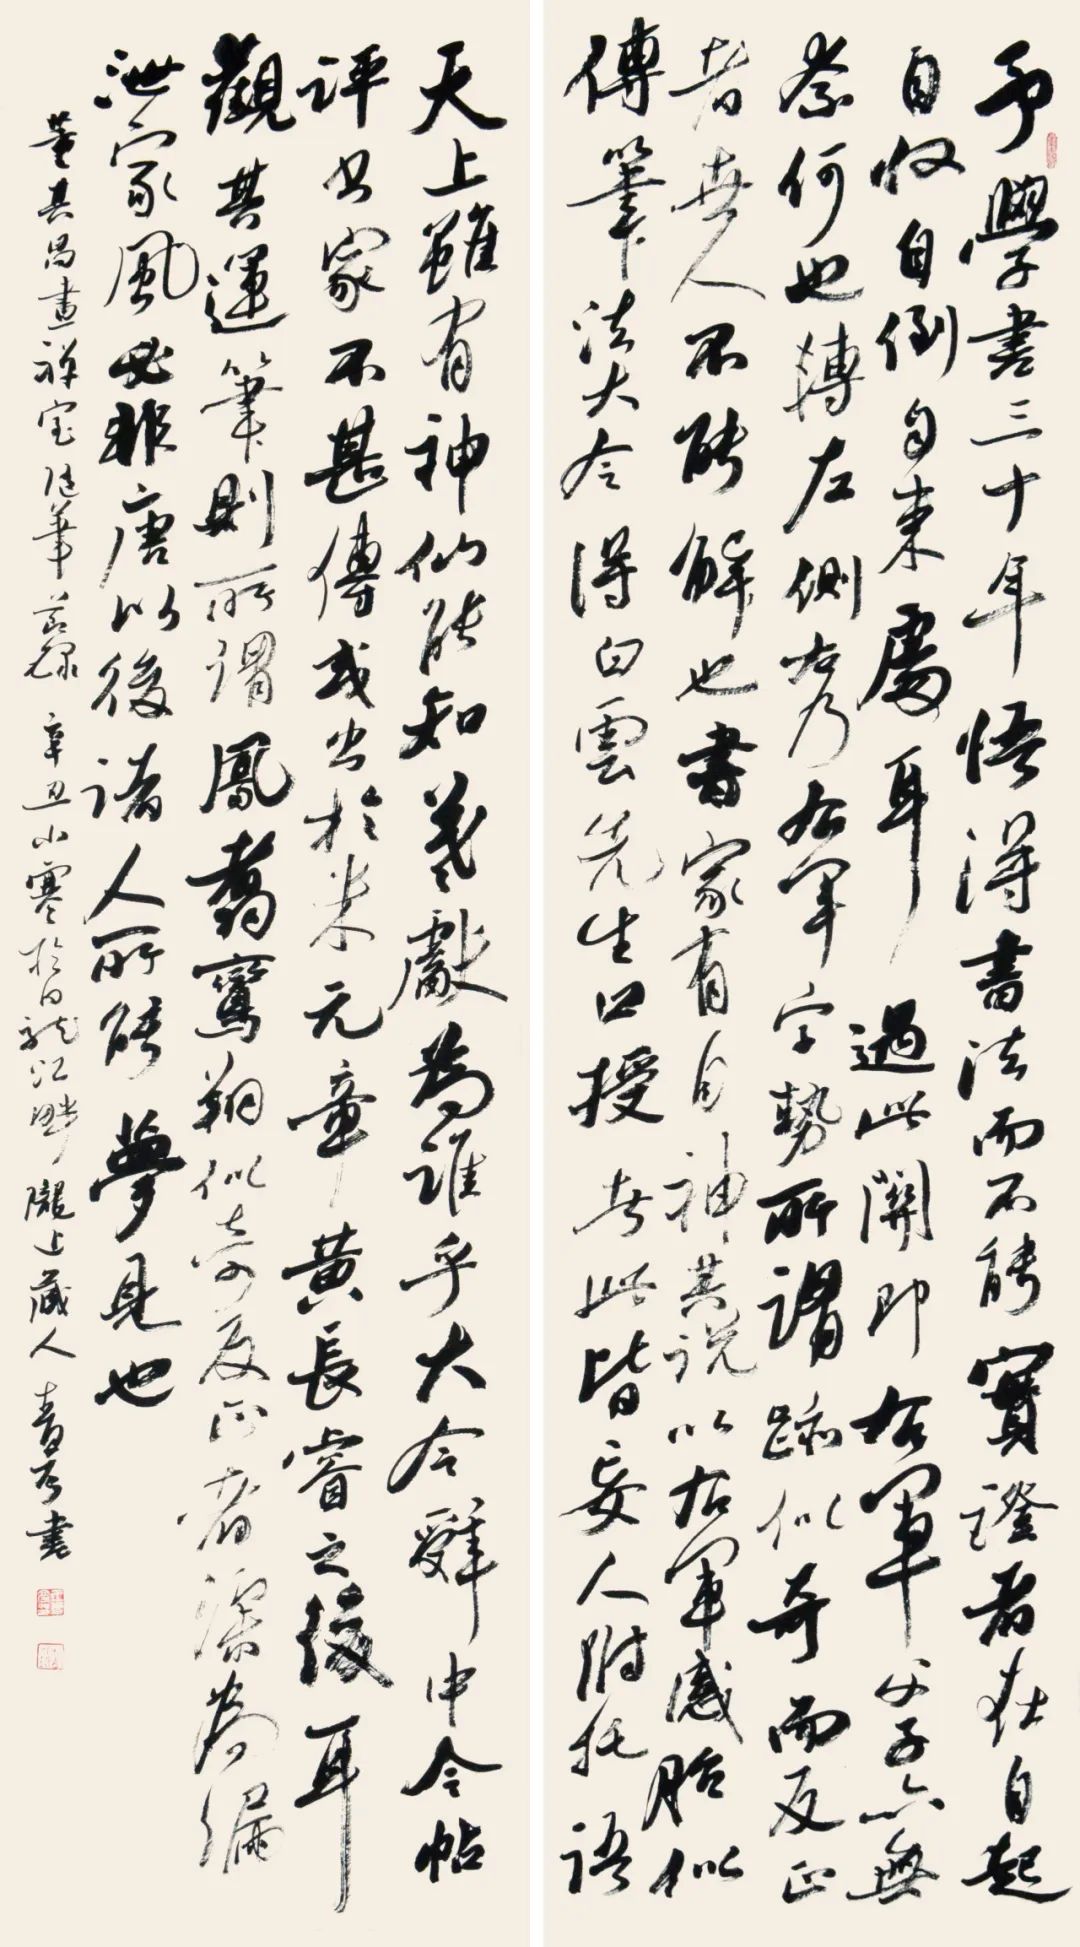 予學書三十年悟得書法而不能實證者在自起
自收自倒自束處耳過此關即右軍父子亦無
奈何也轉左側右乃右軍字勢所謂跡似奇而反正
者世人不能解也書家有自神其說以右軍感胎似
傳筆法大令得白雲先生口授者此皆妄人附托語
天上雖有神仙能知羲獻為誰乎大令辭中令帖
評書家不甚傳或出於米元章黄長睿之後耳
觀其運筆則所謂鳳翥鸞翔似奇反正者深為漏
泄家風必非唐以後諸人所能夢見也
董其昌畫禅室随筆 辛丑小寒於白龍江畔隴上藏人書